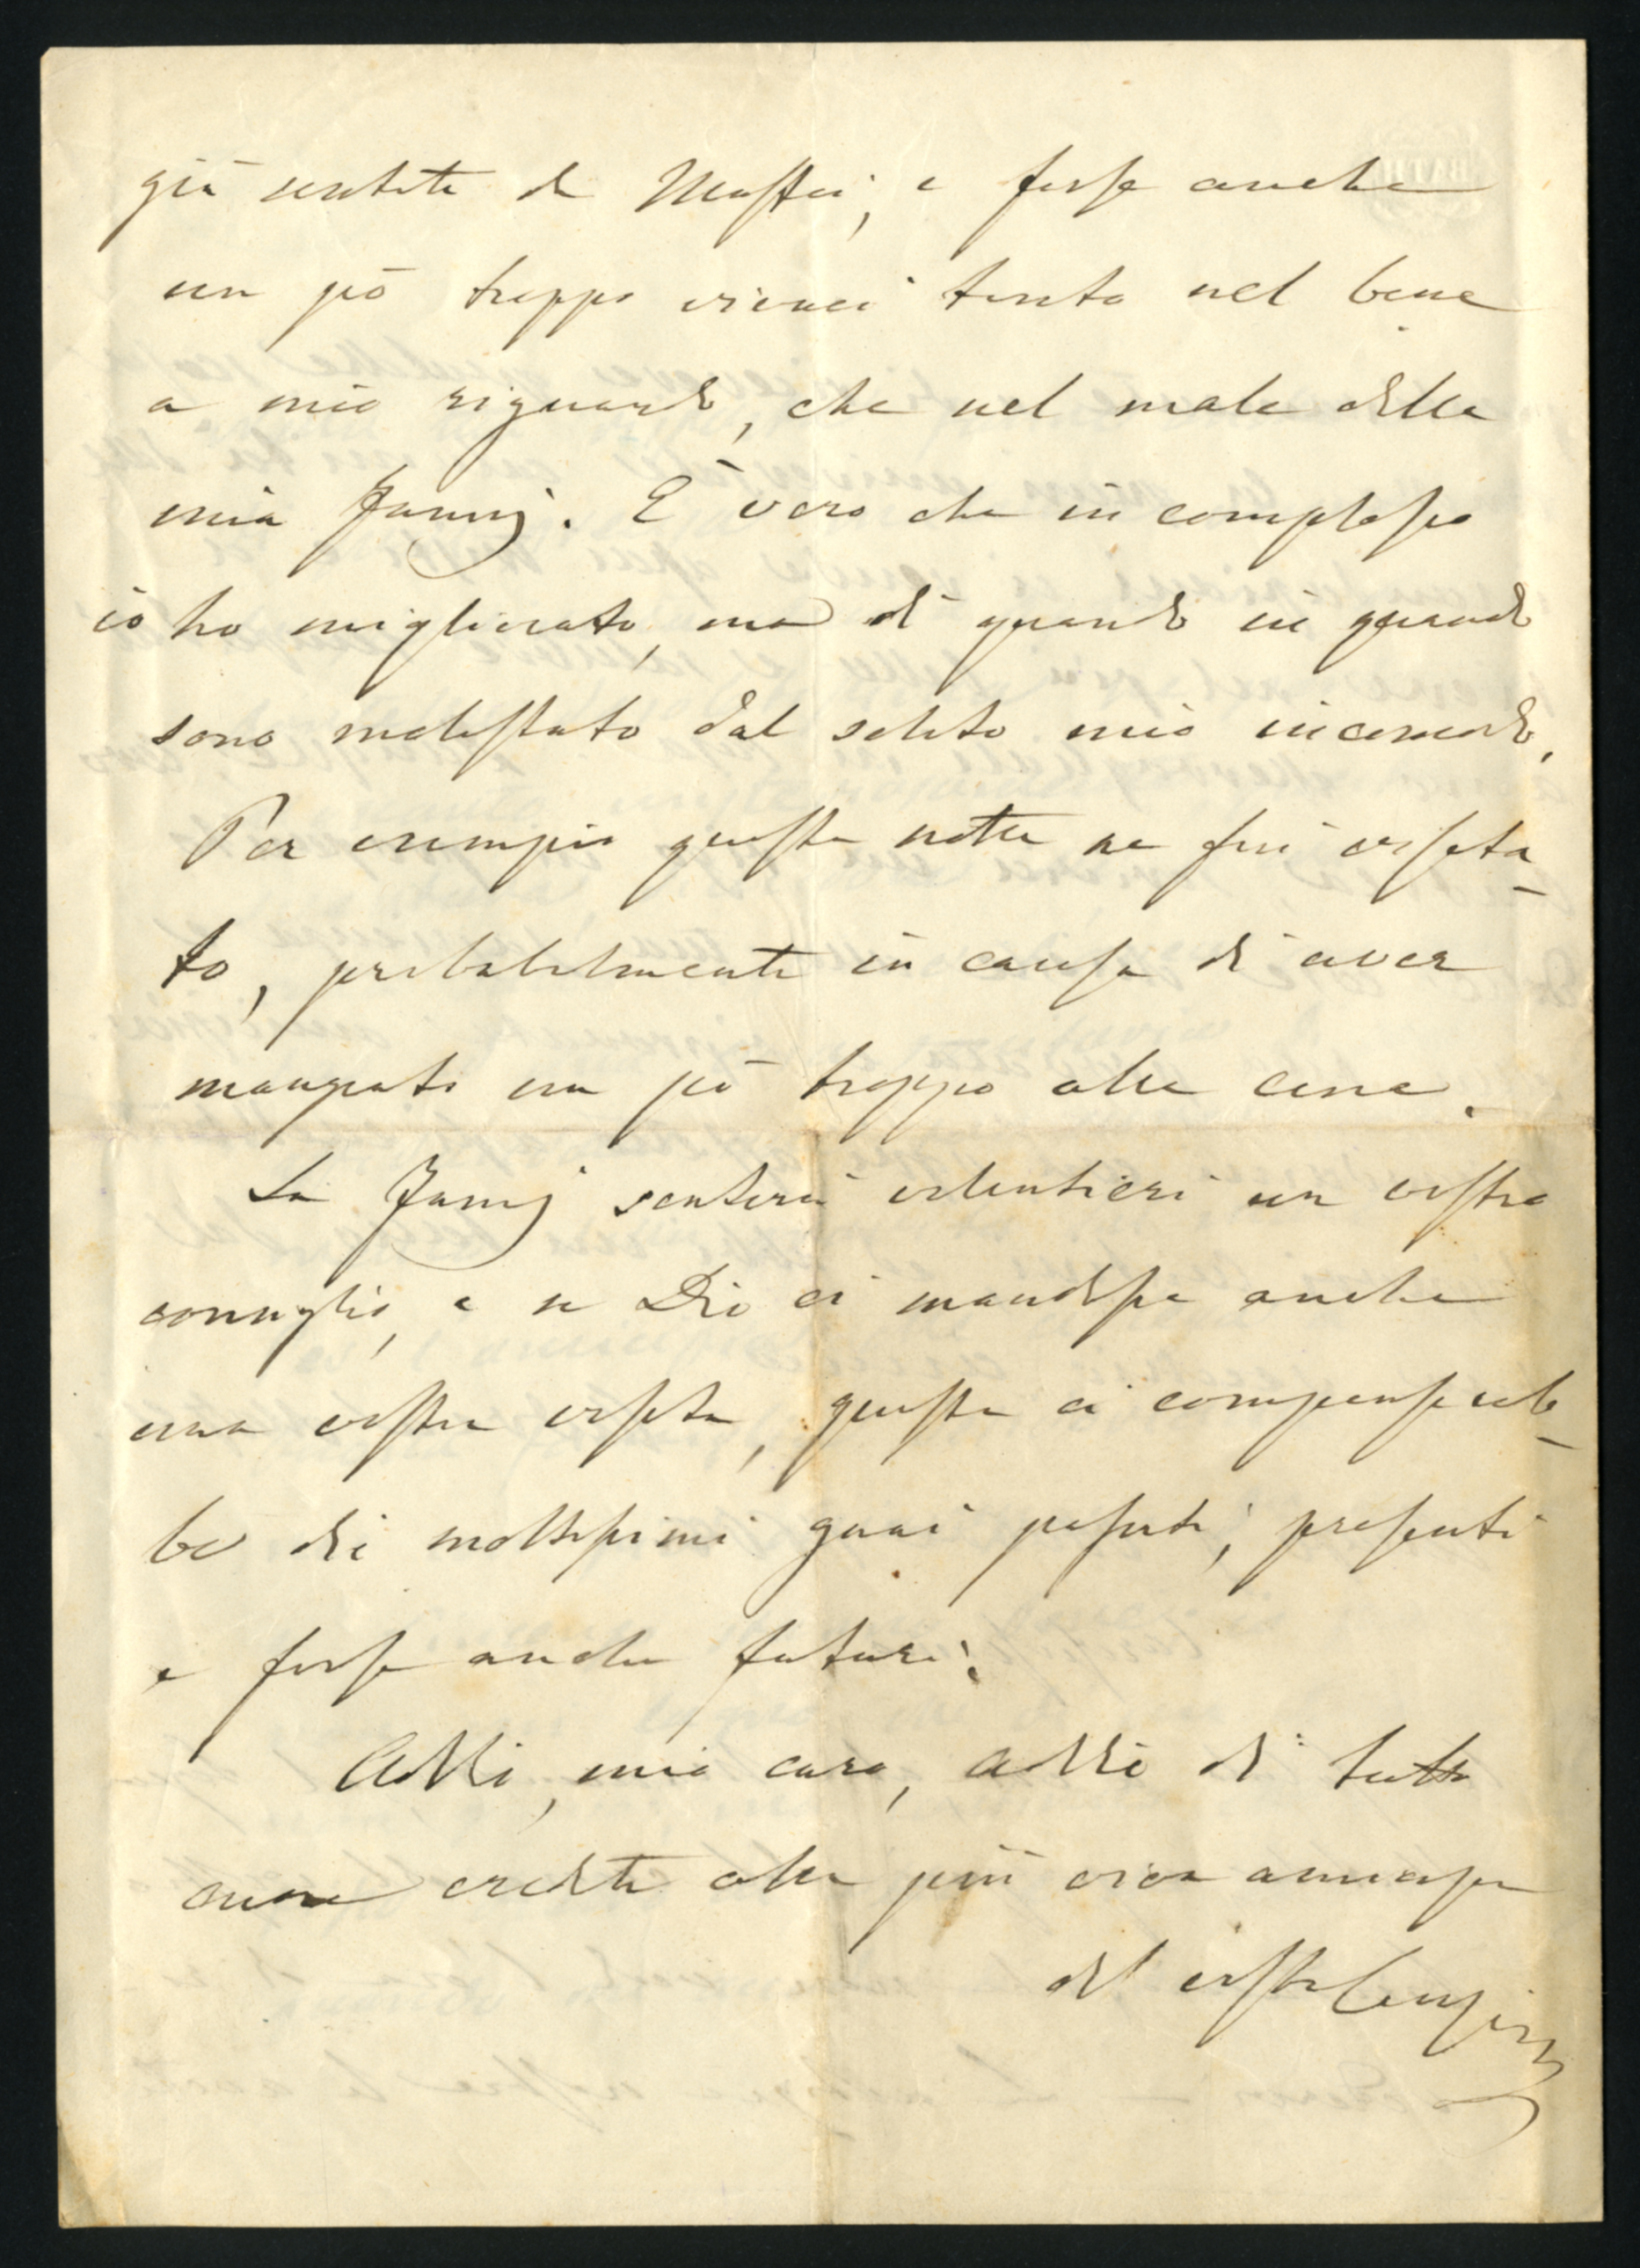 già sentito da Maffei, e forse anche
un pò troppo tanto nel bene
a mio riguardo, che nel male della
mia Fanny. È vero che in complesso
io ho migliorato, ma di quando in quando
sono molestato dal solito mio incomodo.
Per esempio questa notte ne fui visita-
to, probabilmente in causa di aver
mangiato un pò troppo alla cena.
La Fanny sentirà volentieri un vostro
consiglio, e se Dio ci mandasse anche
una vostra visita, questa ci compensereb-
be di moltissimi guai passati, presenti
e forse anche futuri.
Addio, mio caro, addio di tutto
cuore credete alla più viva amicizia
del vostro